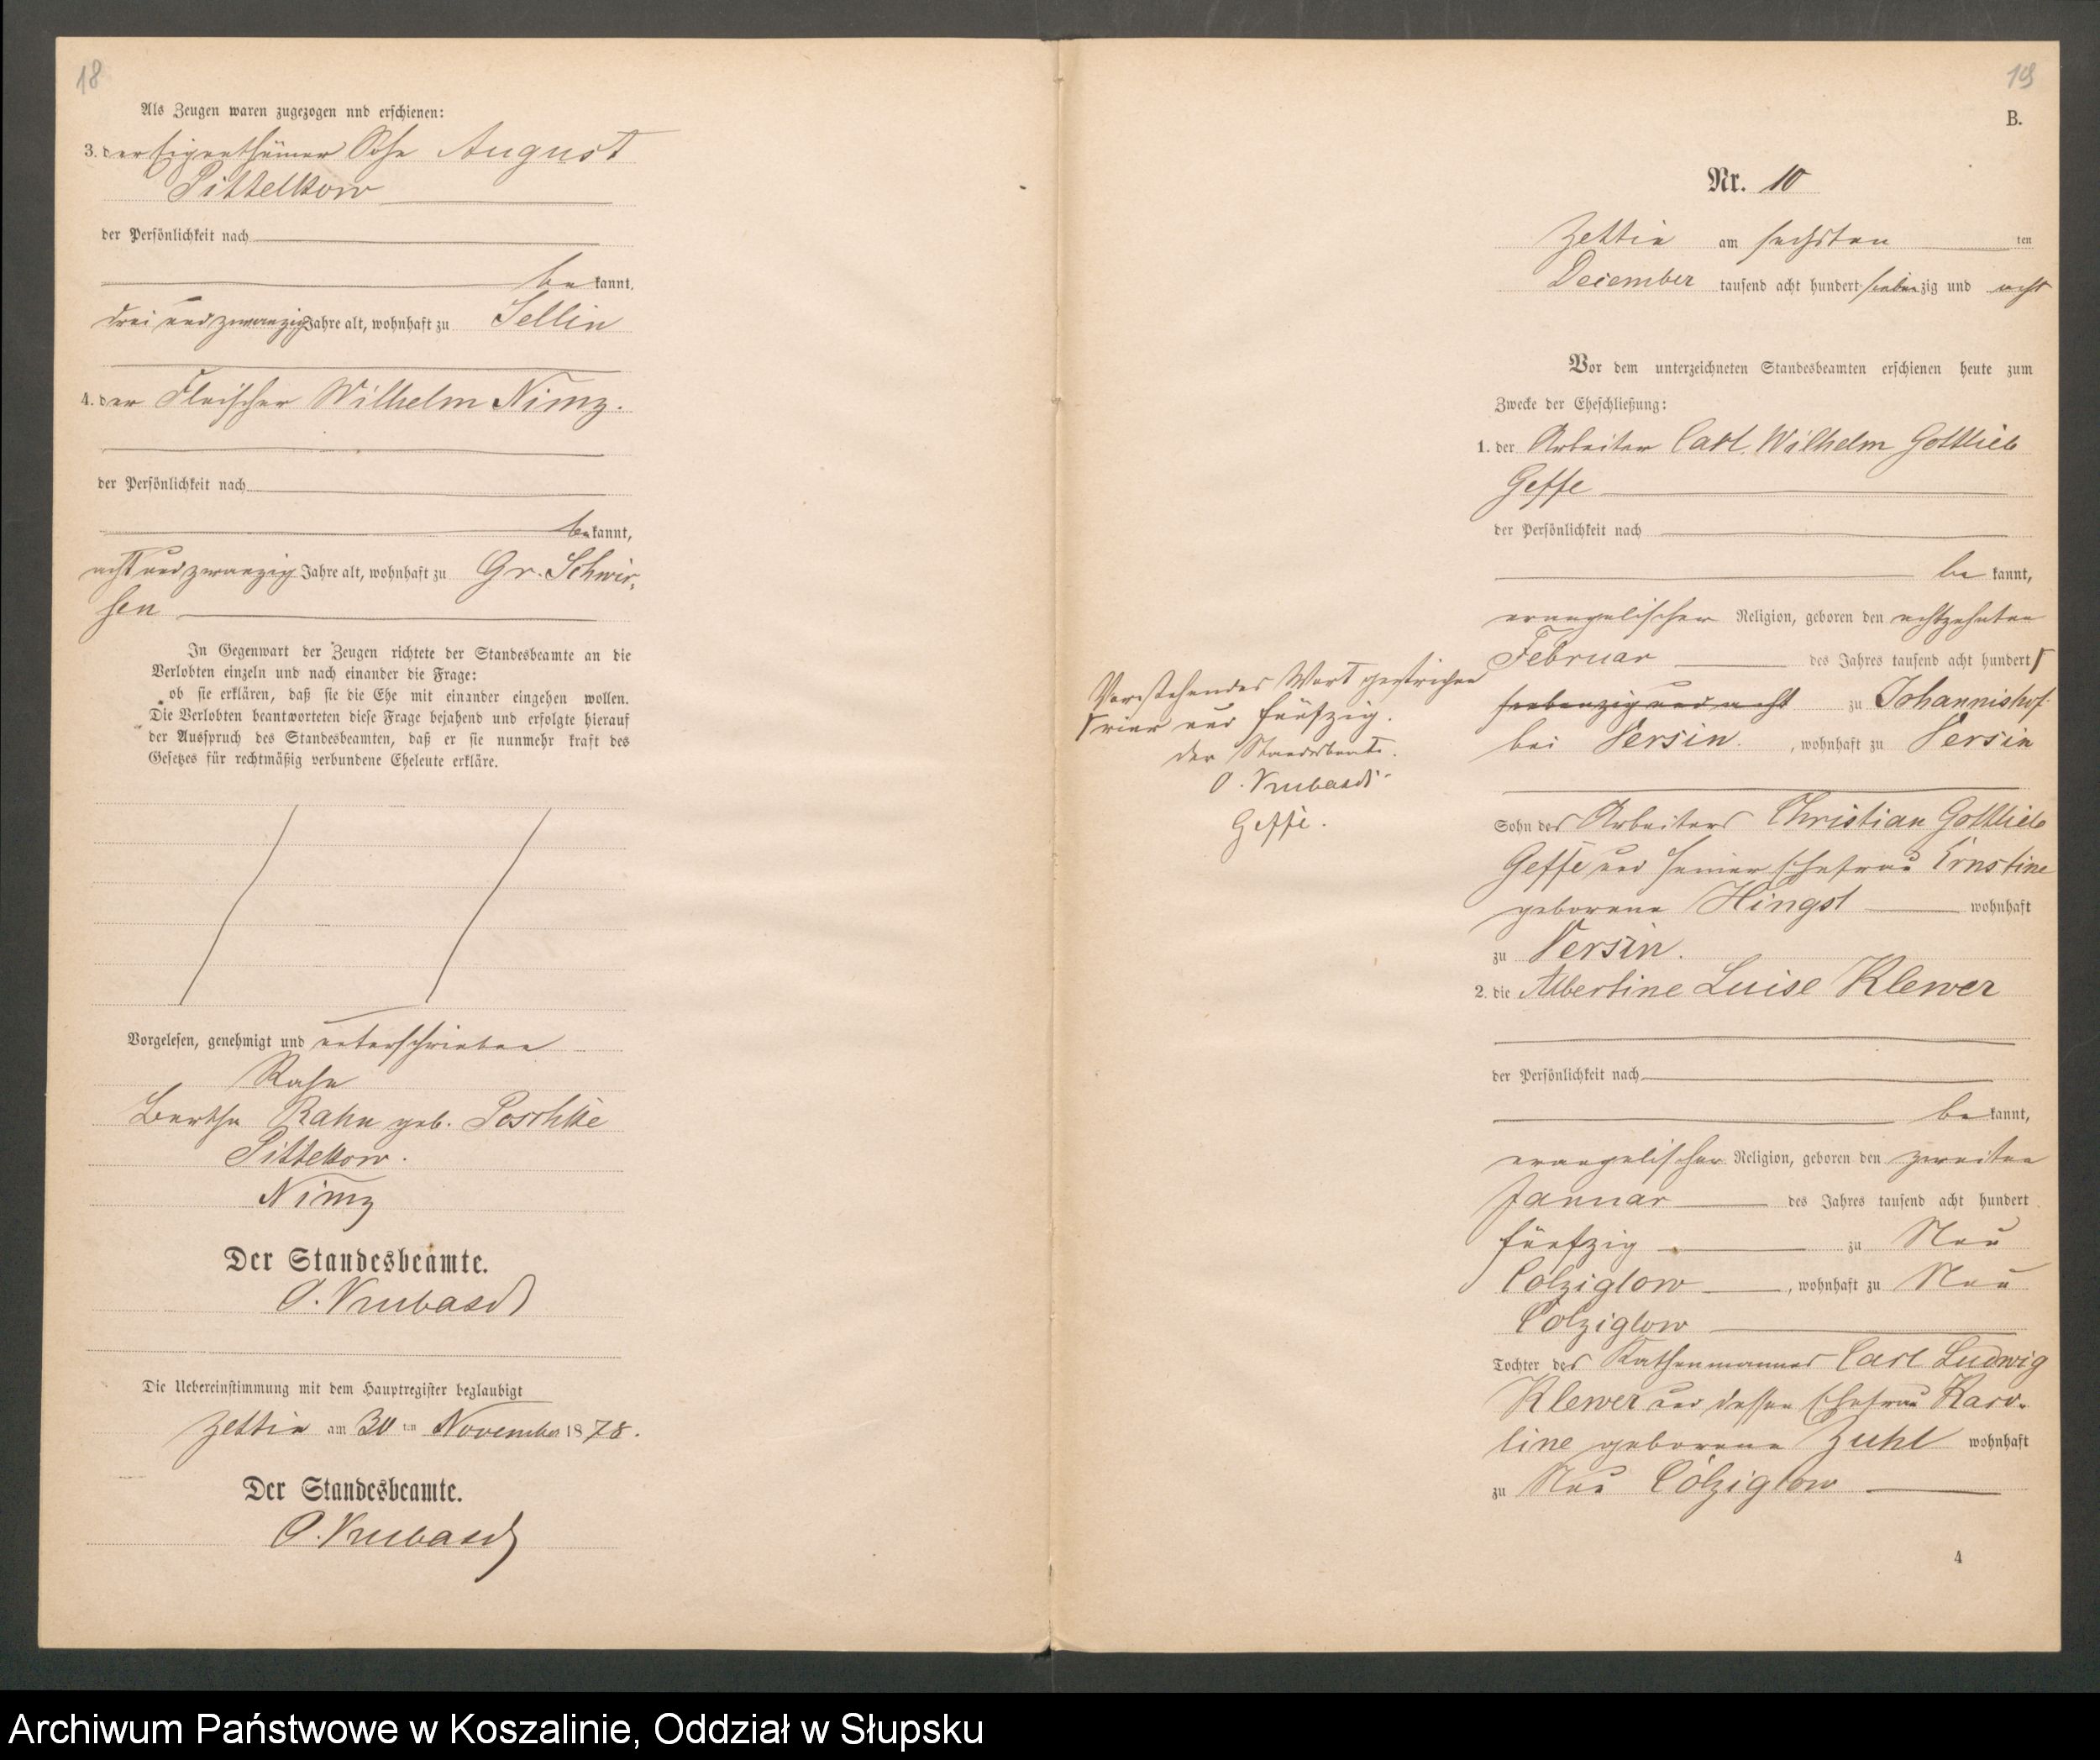 18
Als Zeugen waren zugezogen nnd erschienen:
3. der Eigenthümer Sohn August
Pittelkow
der Persönlichkeit nach
be kannt,
drei und zwanzig Jahre alt, wohnhaft zu Sellin
4. der Fleischer Wilhelm Nimz.
der Persönlichkeit nach
be kannt,
acht und zwanzig Jahre alt, wohnhaft zu Gr. Schwir-
sen
In Gegenwart der Zeugen richtete der Standesbeamte an die
Verlobten einzeln und nach einander die Frage:
ob sie erklären, daß sie die Ehe mit einander eingehen wollen.
Die Verlobten beantworteten diese Frage bejahend und erfolgte hierauf
der Ausspruch des Standesbeamten, daß er sie nunmehr kraft des
Gesetzes für rechtmäßig verbundene Eheleute erkläre.
Vorgelesen, genehmigt und unterschrieben
Rahn
Bertha Rahn geb. Poschke
Pittelkow.
Nimz
Der Standesbeamte.
O.
Die Uebereinstimmung mit dem Hauptregister beglaubigt
Zettin am 30 ten November 18 78.
Der Standesbeamte.
O.
19
B.
Nr. 10
Zettin am sechsten ten
December tausend acht hundert siebenzig und acht
Vor dem unterzeichneten Standesbeamten erschienen heute zum
Zwecke der Eheschließung:
1. der Arbeiter Carl Wilhelm Gottlieb
Geffe
der Persönlichkeit nach
be kannt,
evangelischer Religion, geboren den achtzehnten
Februar des Jahres tausend acht hundert
siebenzig und acht zu Johannishof
bei Versin. , wohnhaft zu Versin
Vorstehendes Wort gestrichen
vier und fünfzig.
Der Standesbeamte.
O.
Geffe.
Sohn des Arbeiters Christian Gottlieb
Geffe und seiner Ehefrau Ernstine
geborene Hingst wohnhaft
zu Versin.
2. die Albertine Luise Klewer
der Persönlichkeit nach
be kannt,
evangelischer Religion, geboren den zweiten
Januar des Jahres tausend acht hundert
fünfzig zu Neu
Colziglow , wohnhaft zu Neu
Colziglow
Tochter des Kathenmannes Carl Ludwig
Klewer und dessen Ehefrau Karo-
line geborene Zuhl wohnhaft
zu Neu Colziglow
4
Archiwum Państwowe w Koszalinie, Oddział w Słupsku